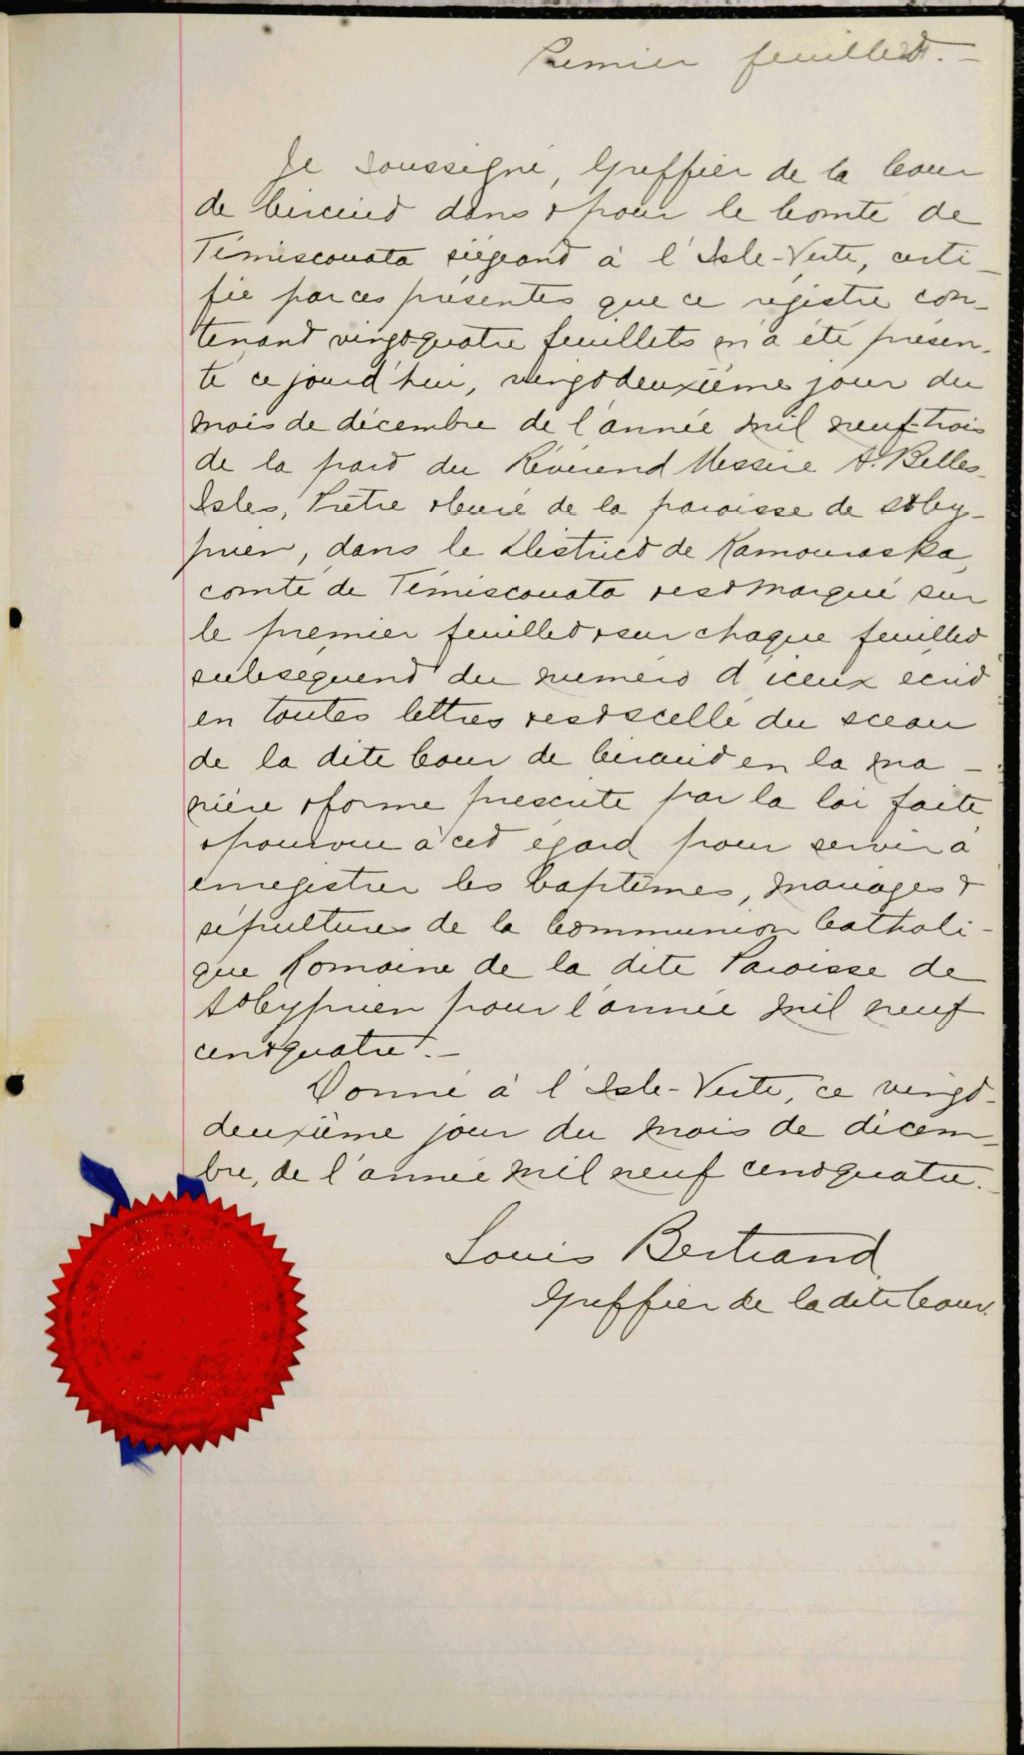 Premier feuillet. -
Je soussigné, Greffier de la Cour
de Circuit dans & pour le Comté de
Témiscouata siégeant à l'Isle-Verte, certi-
fie par ces présentes que ce régistre con-
tenant vingt quatre feuillets m'a été présen-
té ce jourd'hui, vingt deuxième jour du
mois de décembre de l'année mil neuf trois
de la part du Révérend Messire A. Belles-
Isles, Prêtre & Curé de la paroisse de St Cy-
prien, dans le District de Kamouraska,
comté de Témiscouata & est marqué sur
le premier feuillet & sur chaque feuillet
subséquent du numéro d'iceux écrit
en toutes lettres & est scellé du sceau
de la dite Cour de Circuit en la ma-
nière & forme prescrite par la loi faite
& pourvue à cet égard pour servir à
enregistrer les baptêmes, mariages &
sépultures de la Communion Catholi-
que Romaine de la dite Paroisse de
St Cyprien pour l'année mil neuf
cent quatre. -
Donné à l'Isle-Verte, ce vingt-
deuxième jour du mois de décem-
bre, de l'année mil neuf cent quatre. -
Louis Bertrand
Greffier de la dite Cour.